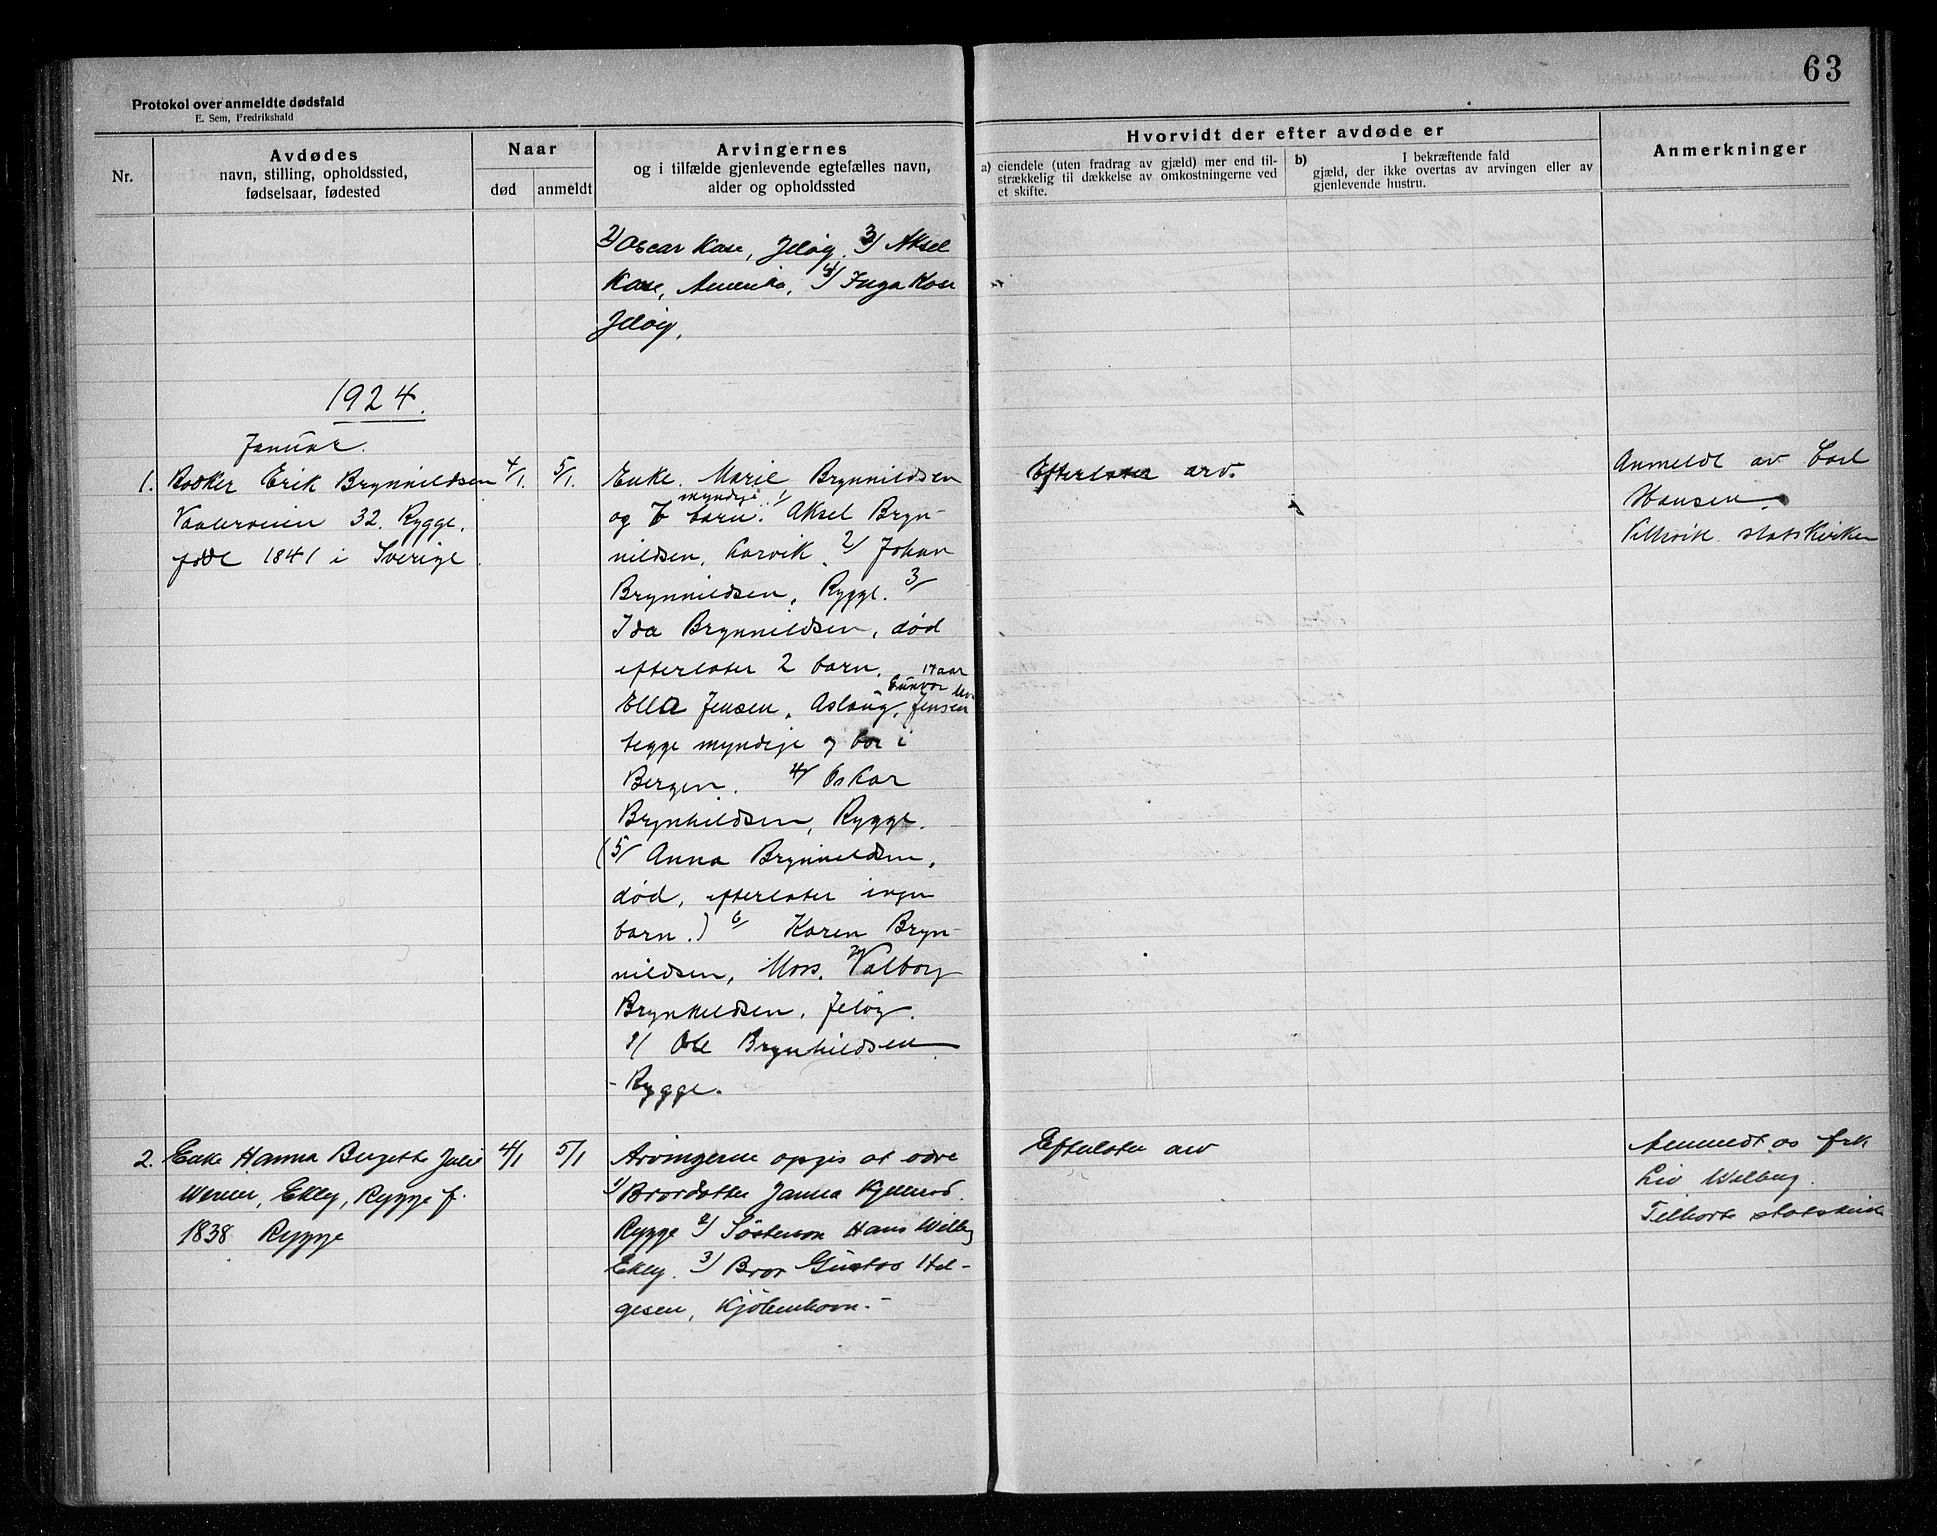 63
Protokol over anmeldte dødsfald
E. Sem, Fredrikshald
Nr.
Avdødes
navn, stilling, opholdssted,
fødselsaar, fødested
Naar
død
anmeldt
Arvingernes
og i tilfælde gjenlevende egtefælles navn,
alder og opholdssted
Hvorvidt der efter avdøde er
a) eiendele (uten fradrag av gjæld) mer end til-
strækkelig til dækkelse av omkostningerne ved
et skifte.
b) I bekræftende fald
gjæld, der ikke overtas av arvingen eller av
gjenlevende hustru.
Anmerkninger
2) Oscar Kase, Jeløy. 3/ Aksel
Kase, Amerika, 4/ Inga Kase
Jeløy.
1924.
Januar.
1. Erik Brynnildsen
Vaalerveien 32. Rygge.
født 1841 i Sverige
4/1.
5/1.
Enke. Marie Brynnildsen
og myndige barn. 1/ Aksel Bryn-
nildsen, Larvik. 2/ Johan
Brynnildsen, Rygge. 3/
Ida Brynnildsen, død
efterlater 2 barn. 17 aar
Ella Jensen, Aslaug Gunvor Jensen
begge myndige og bor i
Bergen. 4/ Oskar
Brynhildsen, Rygge.
(5/ Anna Brynnildsen,
død, efterlater ingen
barn.) 6/ Karen Bryn-
nildsen, Moss. 7/ Valborg
Brynhildsen, Jeløy.
8/ Ole Brynhildsen
- Rygge.
Efterlater arv.
Anmeldt av Carl
Hansen
statskirken
2. Enke Hanna Birgette Julie
Werner, Ekly, Rygge f.
1838 Rygge
4/1
5/1
Arvingerne opgis at være
1) Brordatter Janna Kjellerød.
Rygge 2) Søsterson Hans Wilberg
Ekly. 3) Bror Gustav Hel-
gesen, Kjøbenhavn.-
Efterlater arv
Anmeldt av frk
Liv Wilberg.
Tilhørte statskirk